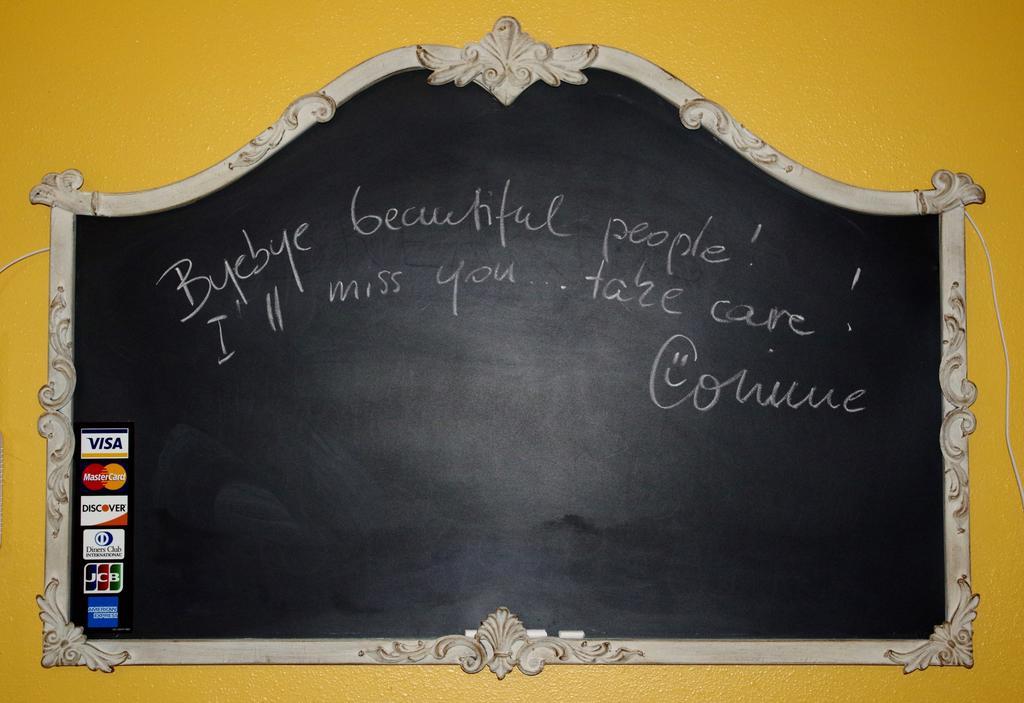 Byebye beautiful people!
I'll miss you... take care!
Corinne
VISA
MasterCard
DISCOVER
Diners Club
INTERNATIONAL
JCB
AMERICAN
EXPRESS